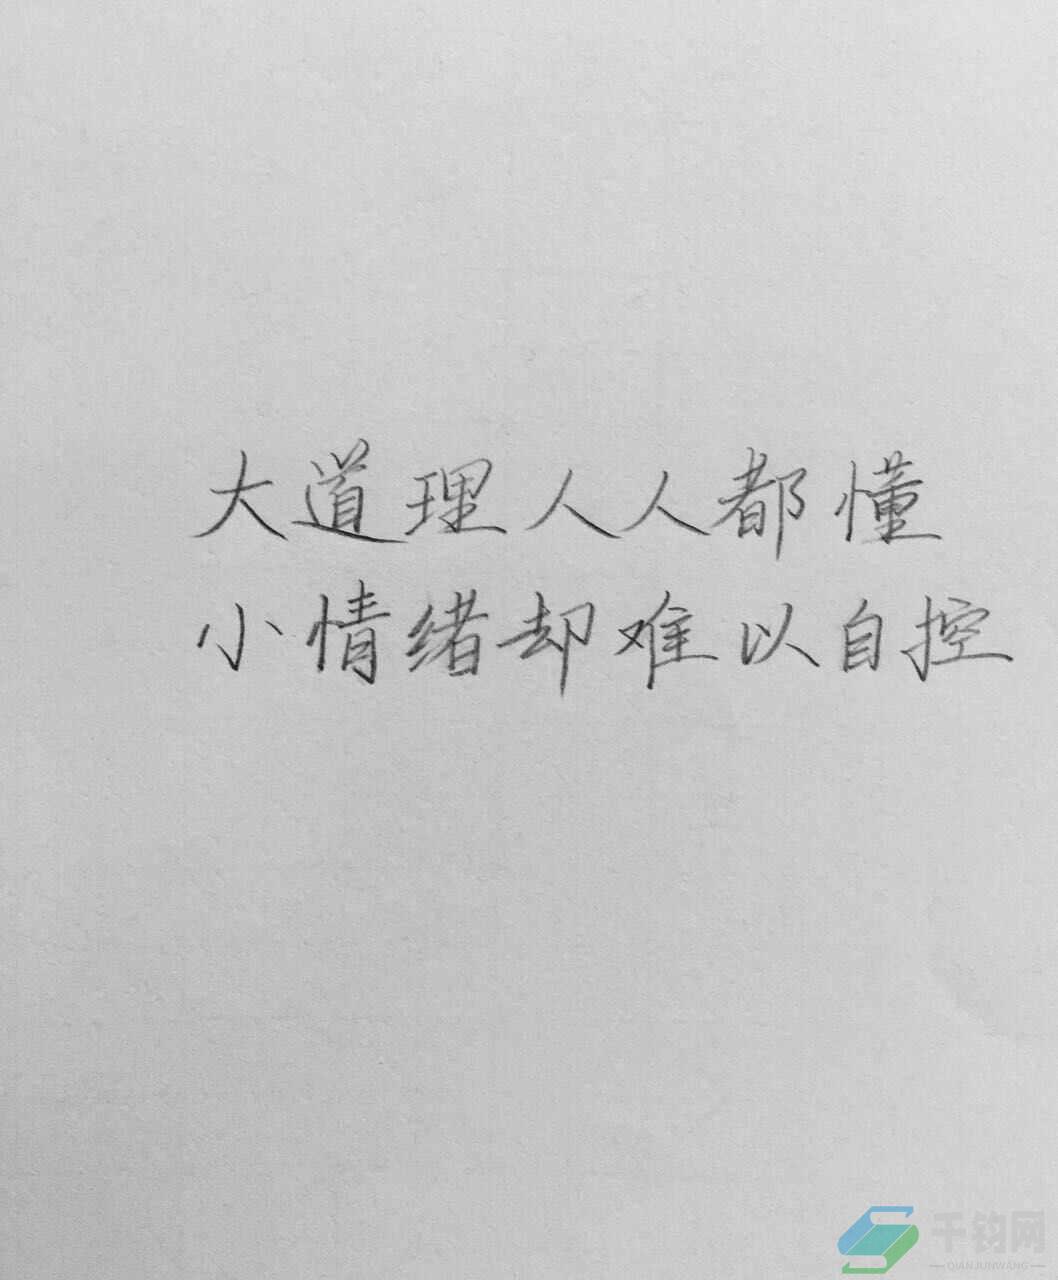 大道理人人都懂
小情绪却难以自控
千钧网
QIANJUNWANG